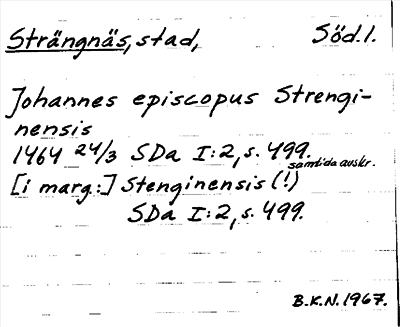 Strängnäs, stad, Söd. l.
Johannes episcopus Strengi-
nensis
1464 24/3 SDa I:2, s. 499.
samtida avskr.
[i marg:] Stenginensis (!)
SDa I:2, s. 499.
B.K.N. 1967.